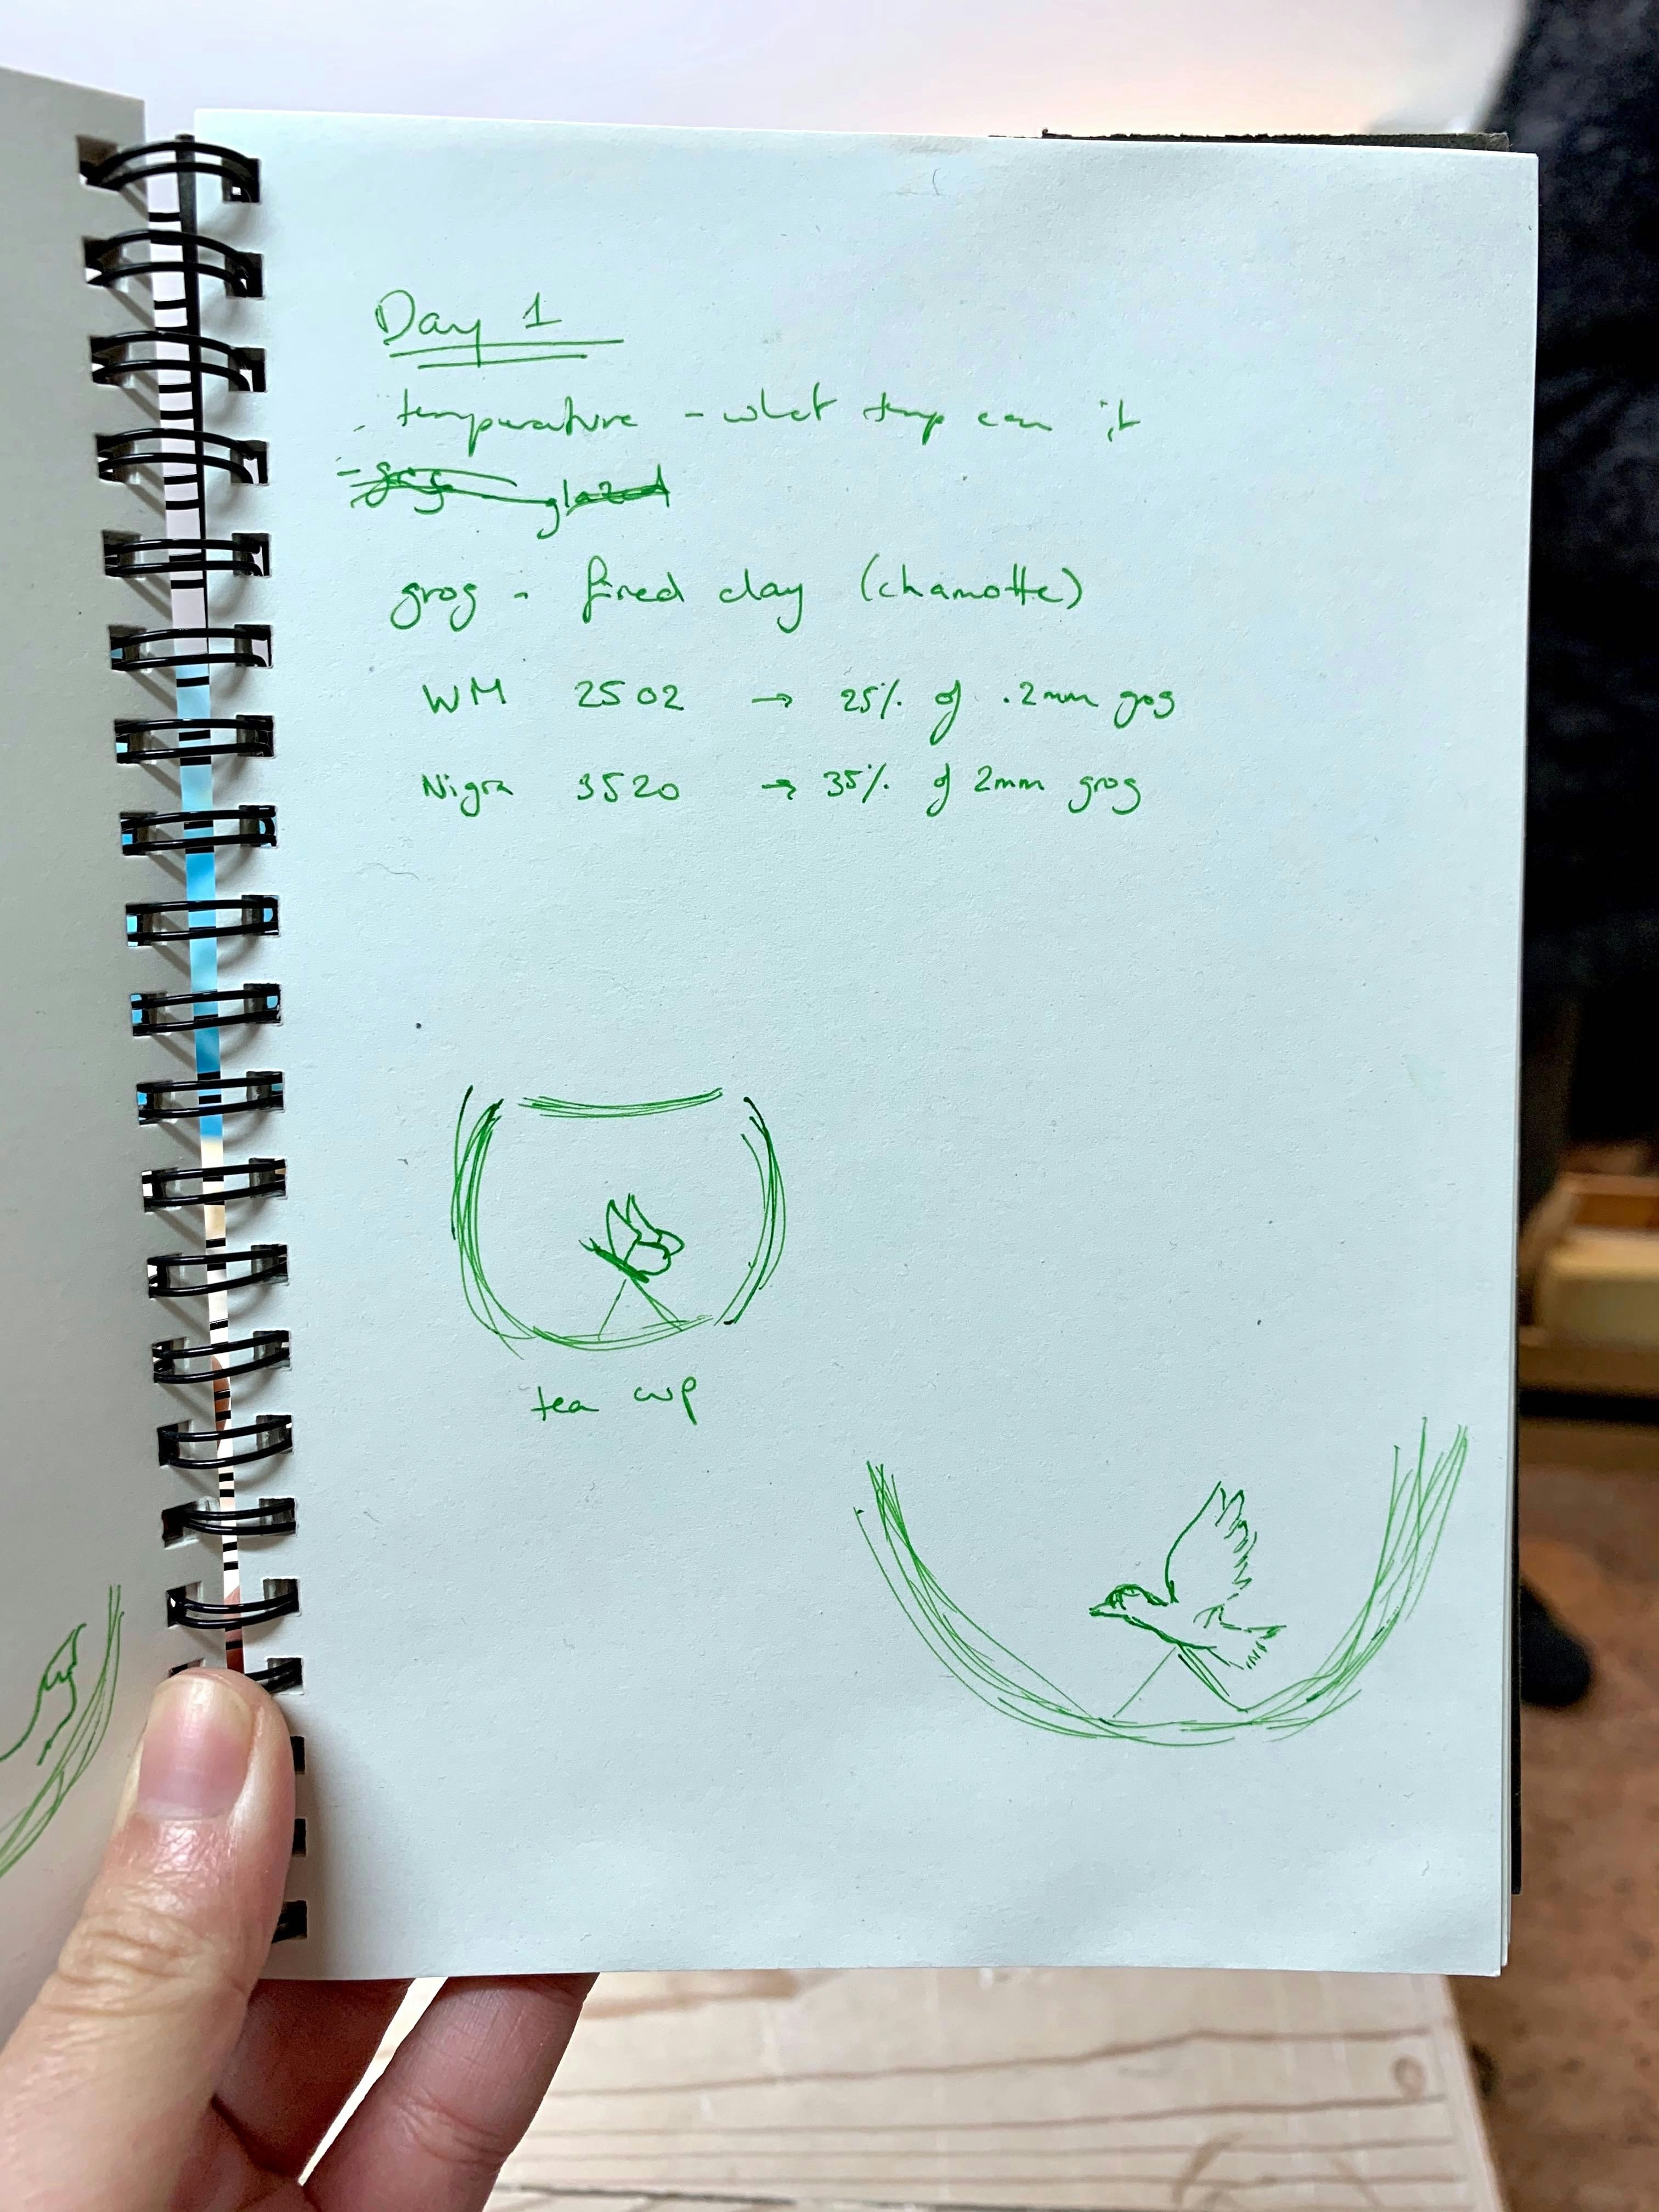 Day 1
- temperature - what temp can it
- grog glazed
grog - fired clay (chamotte)
WM 2502 → 25% of .2mm grog
Nigra 3520 → 35% of 2mm grog
tea cup